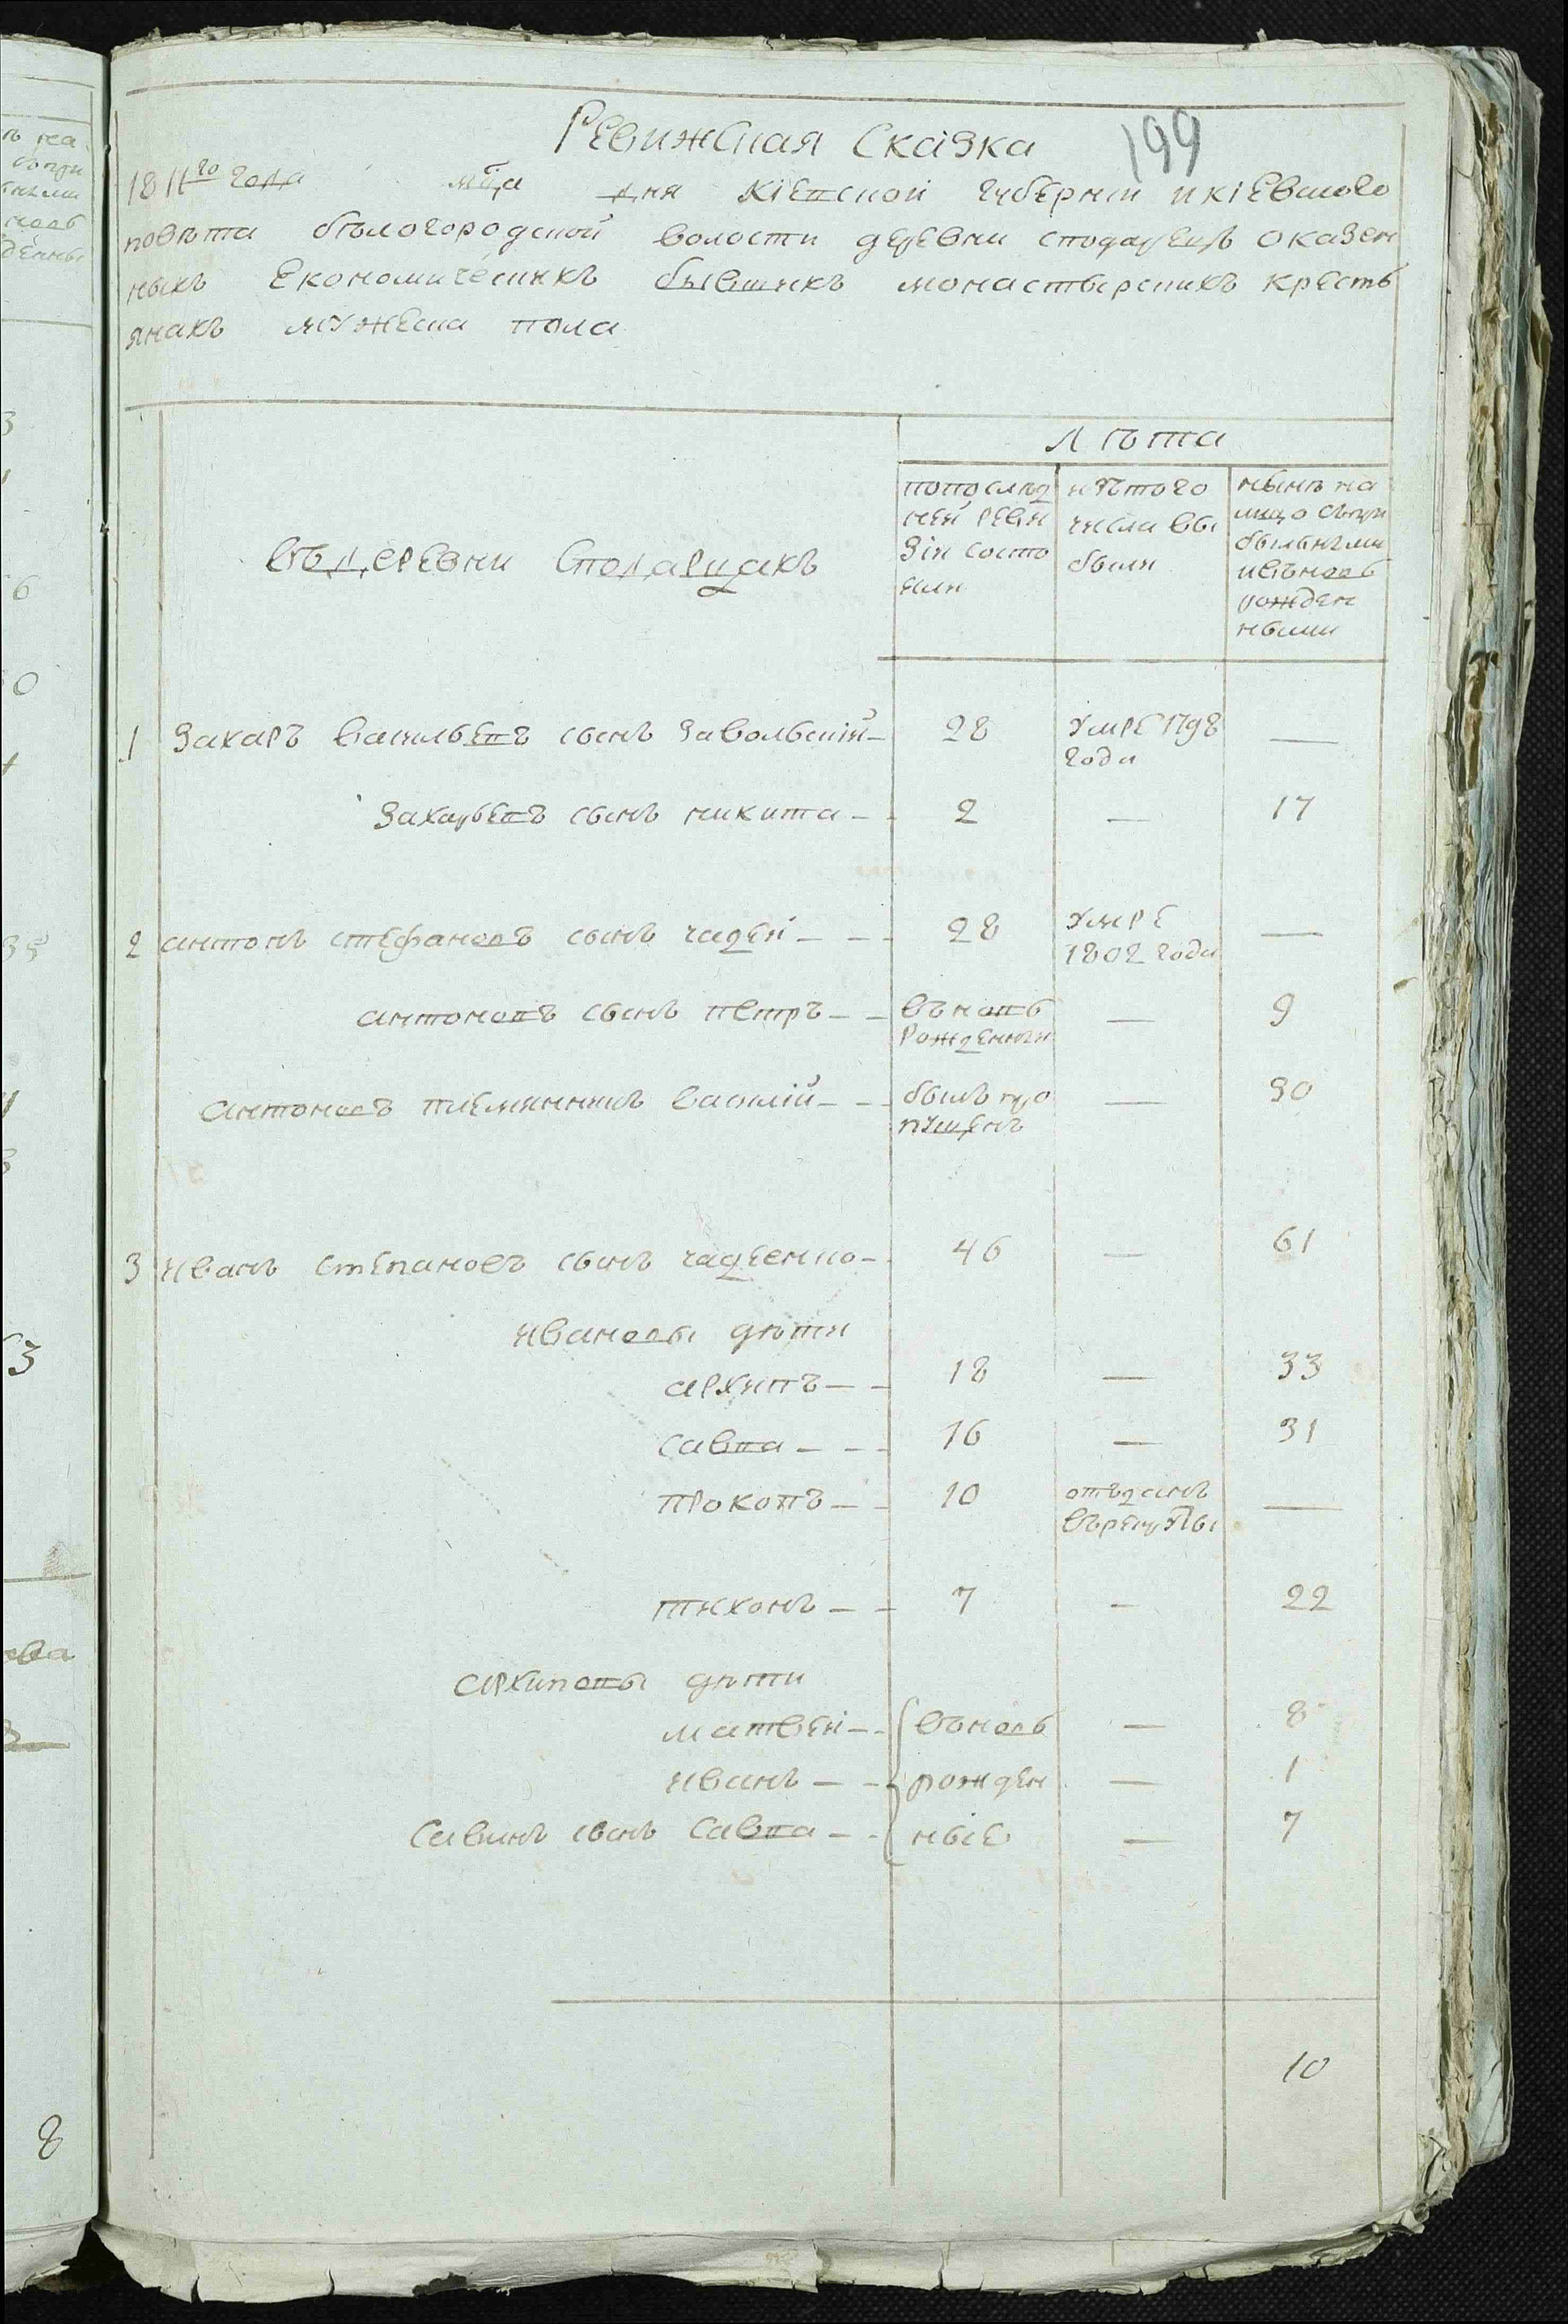 Ревижская Сказка
199
1811го года мца дня Кіевской губерніи и кіевского
повѣта бѣлогородской волости деревни сподарецъ о казен
ныхъ економическихъ бывшихъ монастырскихъ кресть
янахъ мужеска пола
Лѣта
По послѣд
ней реви
зіи состо
яли
изъ того
числа вы
были
нынѣ на
лицо съ при
былыми
и въновь
рожден
ными
Въ деревни Сподарцахъ
1 Захаръ васильевъ сынъ Завольскій 28 умре 1798 —
года
Захарьевъ сынъ никита 2 — 17
2 антонъ стефановъ сынъ чадей 28 умре —
1802 года
антоновъ сынъ петръ въновь — 9
рожденный
антоновъ племянникъ василій былъ про — 30
пущенъ
3 иванъ степановъ сынъ чадеенко 46 — 61
ивановы дѣти
архипъ 18 — 33
савва 16 — 31
прокопъ 10 отъданъ —
въ рекруты
тихонъ 7 — 22
архиповы дѣти
матвей въновь — 8
иванъ рожден — 1
Савинъ сынъ Савва ные — 7
10
8